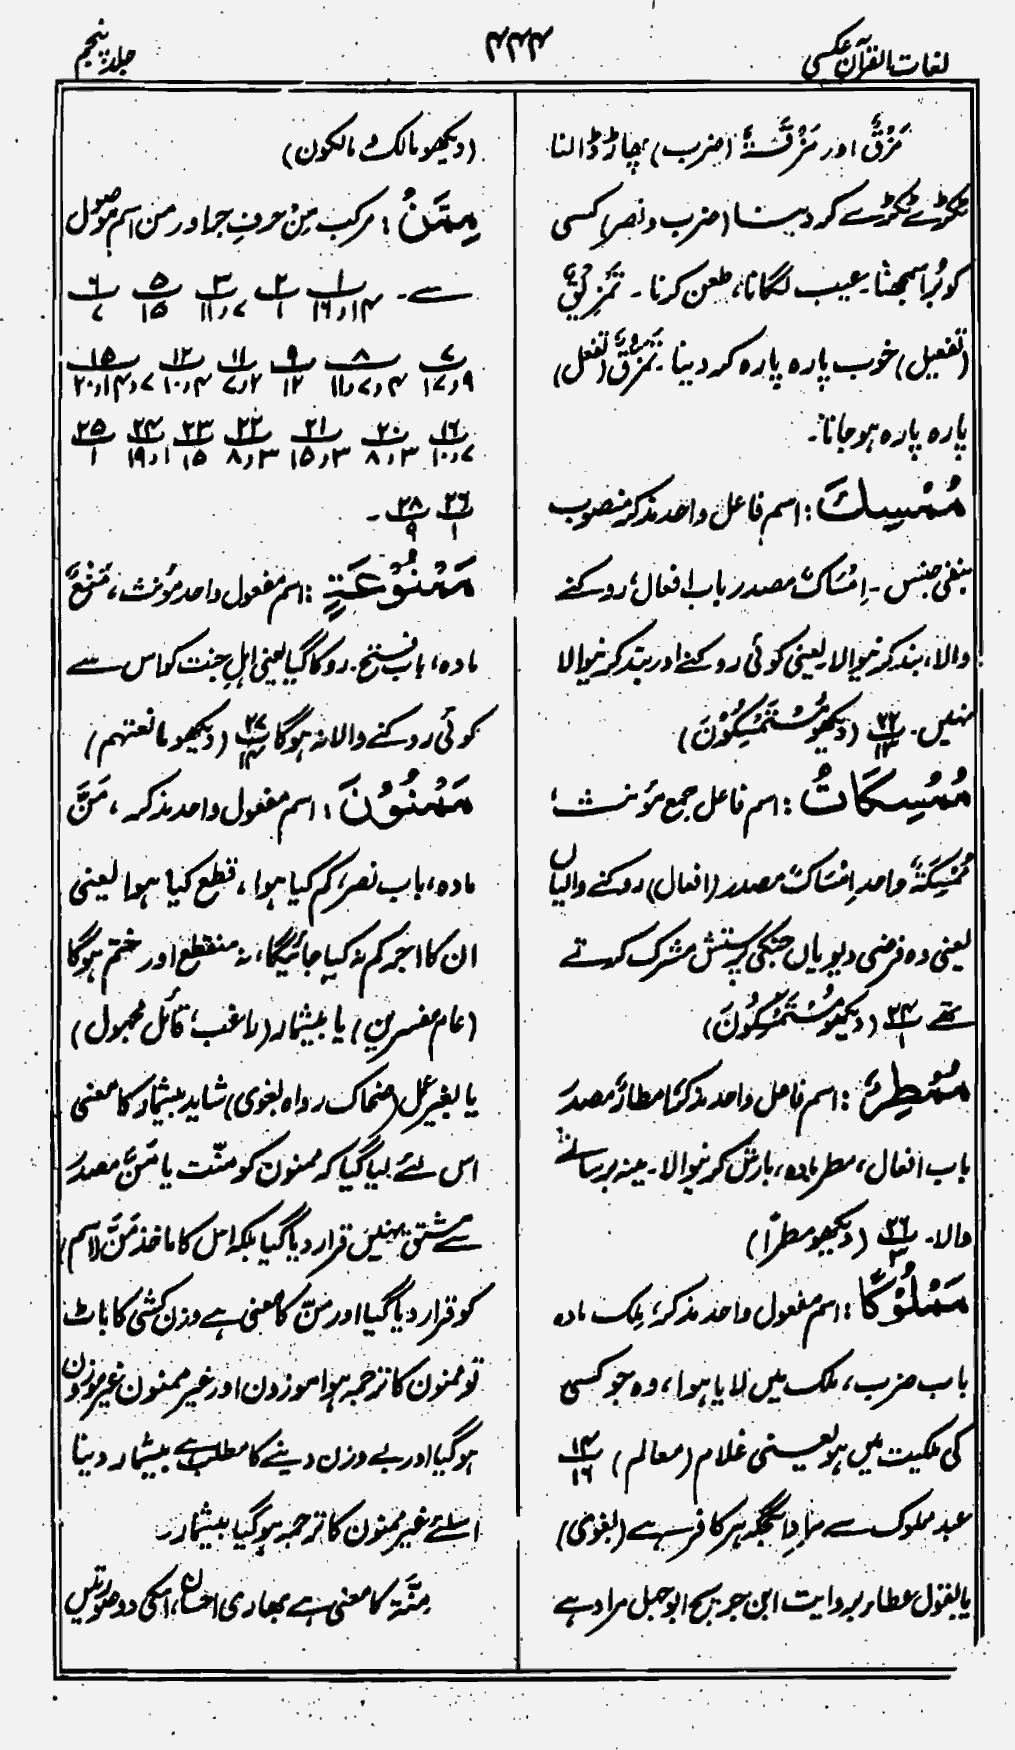 لغات القرآن عکسی
۴۴۴
جلد پنجم
مَزْقٌ اور مَزْقَۃٌ (ضرب) پھاڑ ڈالنا
ٹکڑے ٹکڑے کر دینا (ضرب و نصر) کسی
کو بُرا سمجھنا۔ عیب لگانا، طعن کرنا۔ تَمْزِیْقٌ
(تفعیل) خوب پارہ پارہ کر دینا۔ تَمَزُّقٌ (تفعل)
پارہ پارہ ہو جانا۔
مُمْسِكَ: اسم فاعل واحد مذکر منصوب
بنفی جنس۔ اِمْسَاکٌ مصدر باب افعال، روکنے
والا، بند کرنیوالا۔ یعنی کوئی روکنے اور بند کرنیوالا
نہیں۔ ۲۲/۱۳ (دیکھو مُسْتَمْسِکُوْنَ)
مُمْسِكَاتُ: اسم فاعل جمع مؤنث،
مُمْسِکَۃٌ واحد اِمْسَاکٌ مصدر (افعال) روکنے والیاں
یعنی وہ فرضی دیویاں جنکی پرستش مشرک کرتے
تھے ۲۴/۱ (دیکھو مُسْتَمْسِکُوْنَ)
مُمْطِرُ: اسم فاعل واحد مذکر، امطارٌ مصدر
باب افعال، مطر مادہ، بارش کرنیوالا۔ مینہ برسانے
والا۔ ۲۶/۳ (دیکھو مطرًا)
مَمْلُوْكًا: اسم مفعول واحد مذکر، ملک مادہ
باب ضرب، ملک میں لایا ہوا، وہ جو کسی
کی ملکیت میں ہو یعنی غلام (معالم) ۱۴/۱۶
عبد مملوک سے مراد اسجگہ ہر کافر ہے (بغوی)
یا بقول عطاء بروایت ابن جریج ابوجہل مراد ہے
(دیکھو مالک و مالکون)
مِمَّنْ: مرکب مِنْ حرفِ جر اور من اسم موصول
سے۔ ۱/۱۴و۱۶ ۲/۱ ۳/۷و۱۱ ۵/۱۵ ۶/۷
۷/۹و۱۷ ۸/۴و۷و۱۱ ۹/۱۲ ۱۱/۲و۷ ۱۲/۴و۱۰ ۱۵/۷و۱۴و۲۰
۱۶/۷و۱۰ ۲۰/۳و۸ ۲۱/۳و۱۵ ۲۲/۳و۸ ۲۳/۱۵ ۲۴/۱و۱۹ ۲۵/۱
۲۶/۱ ۲۸/۹۔
مَمْنُوْعَةٍ: اسم مفعول واحد مؤنث، مَنْعٌ
مادہ، باب فتح۔ روکا گیا یعنی اہلِ جنت کو اس سے
کوئی روکنے والا نہ ہوگا ۲۷/۱۴ (دیکھو مانعتہم)
مَمْنُوْنٍ: اسم مفعول واحد مذکر، مَنٌّ
مادہ، باب نصر، کم کیا ہوا، قطع کیا ہوا یعنی
ان کا اجر کم نہ کیا جائیگا، نہ منقطع اور ختم ہوگا
(عام مفسرین) یا بیشمار (راغب، قائل مجہول)
یا بغیر عمل (ضحاک رواہ لبغوی) شاید بیشمار کا معنی
اس لئے لیا گیا کہ ممنون کو منّت یا مَنٌّ مصدر
سے مشتق نہیں قرار دیا گیا بلکہ اس کا ماخذ مَنٌّ (اسم)
کو قرار دیا گیا اور منّ کا معنی ہے وزن کشی کا باٹ
تو ممنون کا ترجمہ ہوا موزون اور غیر ممنون غیر موزون
ہو گیا اور بے وزن دینے کا مطلب ہے بیشمار دینا
اسلئے غیر ممنون کا ترجمہ ہو گیا بیشمار۔
مِنَّۃٌ کا معنی ہے بھاری احسان، اسکی دو صورتیں